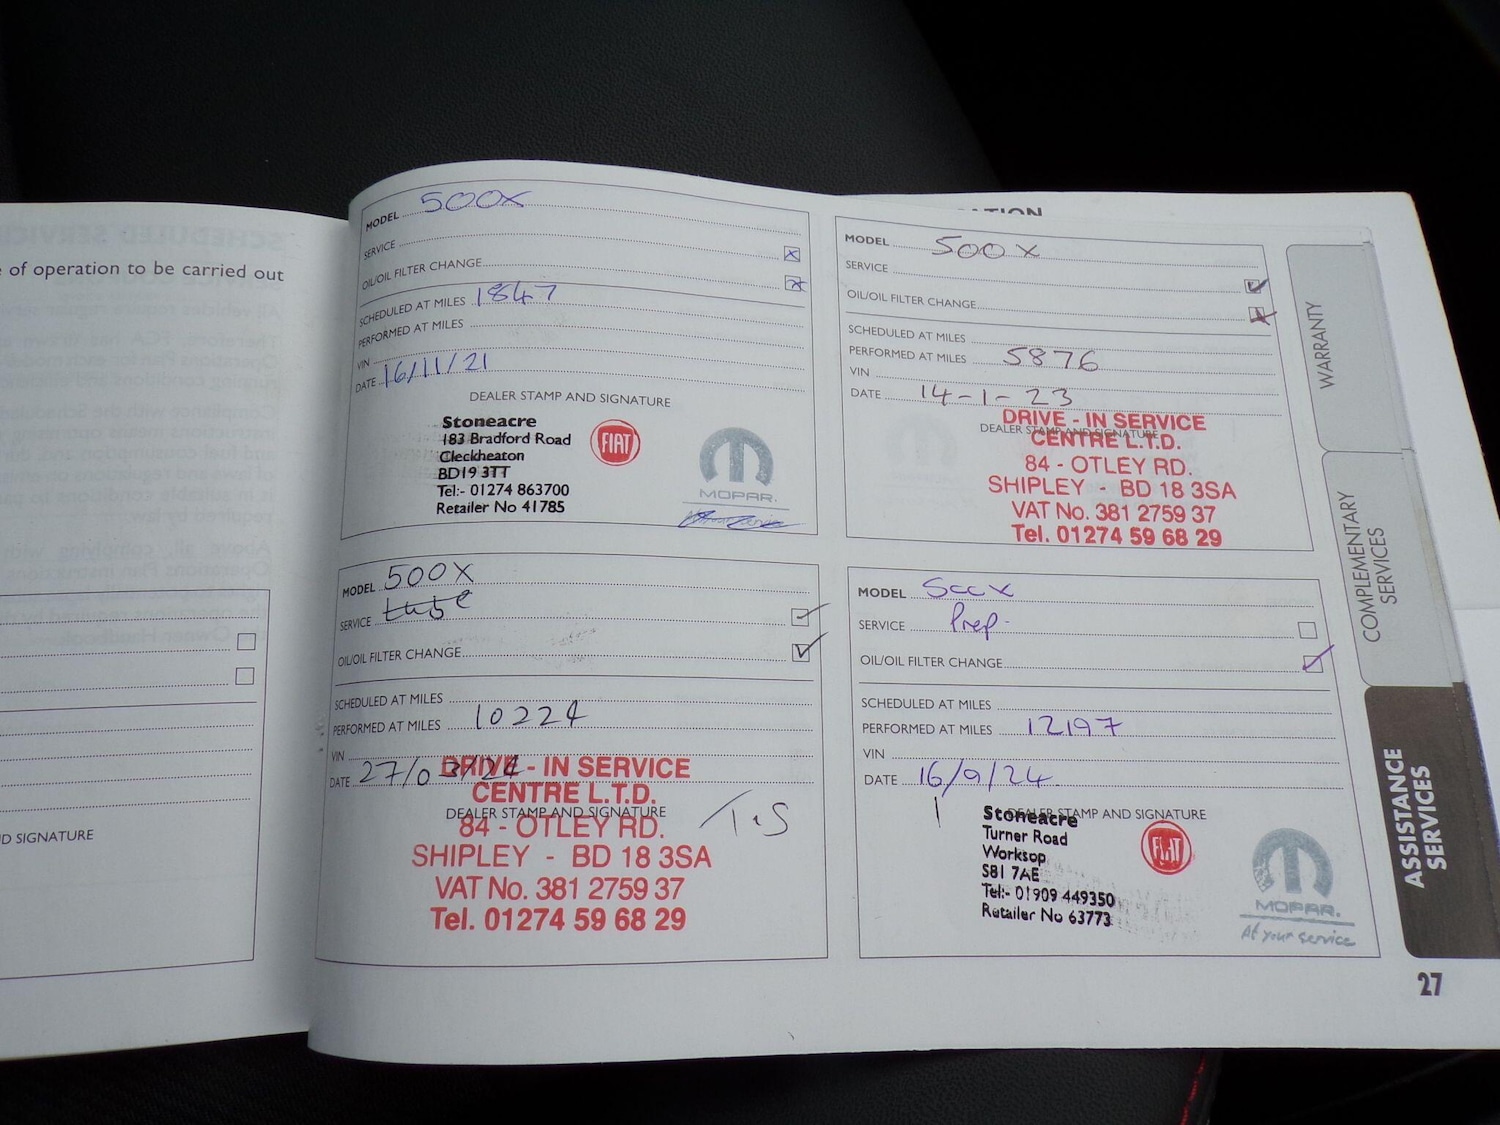 e of operation to be carried out
D SIGNATURE
MODEL 500X
SERVICE
OIL/OIL FILTER CHANGE
SCHEDULED AT MILES 1847
PERFORMED AT MILES
VIN
DATE 16/11/21
DEALER STAMP AND SIGNATURE
Stoneacre
183 Bradford Road
Cleckheaton
BD19 3TT
Tel:- 01274 863700
Retailer No 41785
FIAT
MOPAR.
ATION
MODEL 500X
SERVICE
OIL/OIL FILTER CHANGE
SCHEDULED AT MILES
PERFORMED AT MILES 5876
VIN
DATE 14-1-23
DEALER STAMP AND SIGNATURE
DRIVE - IN SERVICE
CENTRE L.T.D.
84 - OTLEY RD.
SHIPLEY - BD 18 3SA
VAT No. 381 2759 37
Tel. 01274 59 68 29
MODEL 500X
SERVICE
OIL/OIL FILTER CHANGE
SCHEDULED AT MILES
PERFORMED AT MILES 10224
VIN
DATE 27/03/24
DEALER STAMP AND SIGNATURE
DRIVE - IN SERVICE
CENTRE L.T.D.
84 - OTLEY RD.
SHIPLEY - BD 18 3SA
VAT No. 381 2759 37
Tel. 01274 59 68 29
MODEL 500X
SERVICE Prep.
OIL/OIL FILTER CHANGE
SCHEDULED AT MILES
PERFORMED AT MILES 12197
VIN
DATE 16/9/24
DEALER STAMP AND SIGNATURE
Stoneacre
Turner Road
Worksop
S81 7AE
Tel:- 01909 449350
Retailer No 63773
FIAT
MOPAR.
At your service
WARRANTY
COMPLEMENTARY
SERVICES
ASSISTANCE
SERVICES
27